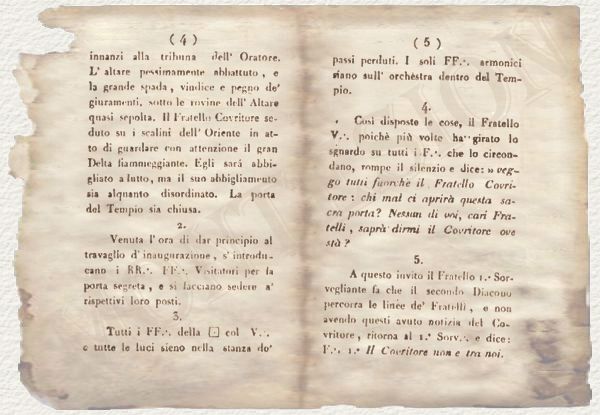 ( 4 )
innanzi alla tribuna dell' Oratore.
L' altare pessimamente abbattuto, e
la grande spada, vindice e pegno de'
giuramenti, sotto le rovine dell' Altare
quasi sepolta. Il Fratello Covritore se-
duto su i scalini dell' Oriente in at-
to di guardare con attenzione il gran
Delta fiammeggiante. Egli sarà abbi-
gliato a lutto, ma il suo abbigliamento
sia alquanto disordinato. La porta
del Tempio sia chiusa.
2.
Venuta l' ora di dar principio al
travaglio d' inaugurazione, s' introdu-
cano i RR∴ FF∴ Visitatori per la
porta segreta, e si facciano sedere a'
rispettivi loro posti.
3.
Tutti i FF∴ della ⊡ col V∴
e tutte le luci sieno nella stanza do'
( 5 )
passi perduti. I soli FF∴ armonici
siano sull' orchèstra dentro del Tem-
pio.
4.
Così disposte le cose, il Fratello
V∴ poichè più volte ha girato lo
sguardo su tutti i F∴ che lo circon-
dano, rompe il silenzio e dice: » veg-
go tutti fuorchè il Fratello Covri-
tore : chi mai ci aprirà questa sa-
cra porta? Nessun di voi, cari Fra-
telli, saprà dirmi il Covritore ove
stà?
5.
A questo invito il Fratello 1.° Sor-
vegliante fa che il secondo Diacono
percorra le linèe de' Fratelli, e non
avendo questi avuto notizia del Co-
vritore, ritorna al 1.° Sorv∴ e dice:
F∴ 1.° Il Covritore non è tra noi.